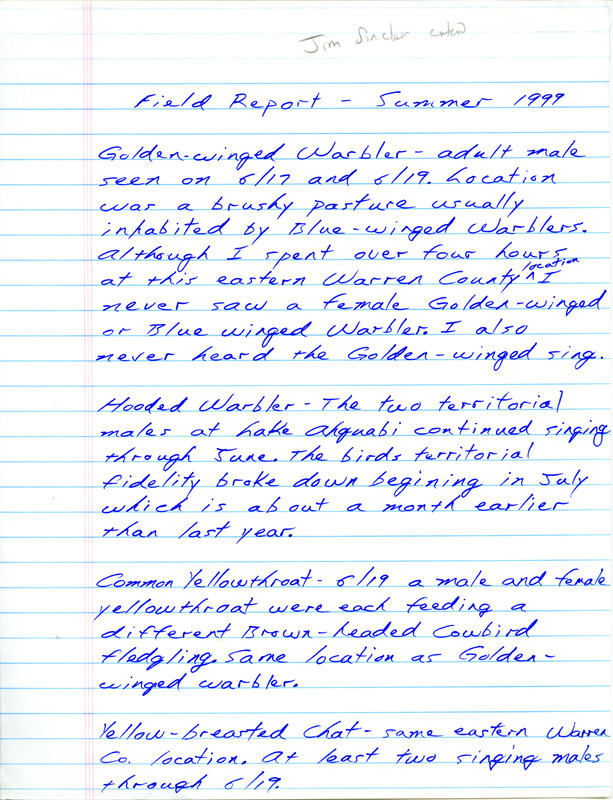 Jim Sinclair
Field Report - Summer 1999
Golden-winged Warbler - adult male
seen on 6/17 and 6/19. Location
was a brushy pasture usually
inhabited by Blue-winged Warblers.
Although I spent over four hours
at this eastern Warren County location I
never saw a female Golden-winged
or Blue winged Warbler. I also
never heard the Golden-winged sing.
Hooded Warbler - The two territorial
males at Lake Ahquabi continued singing
through June. The birds territorial
fidelity broke down begining in July
which is about a month earlier
than last year.
Common Yellowthroat - 6/19 a male and female
yellowthroat were each feeding a
different Brown-headed Cowbird
fledgling. Same location as Golden-
winged warbler.
Yellow-breasted Chat - same eastern Warren
Co. location. At least two singing males
through 6/19.